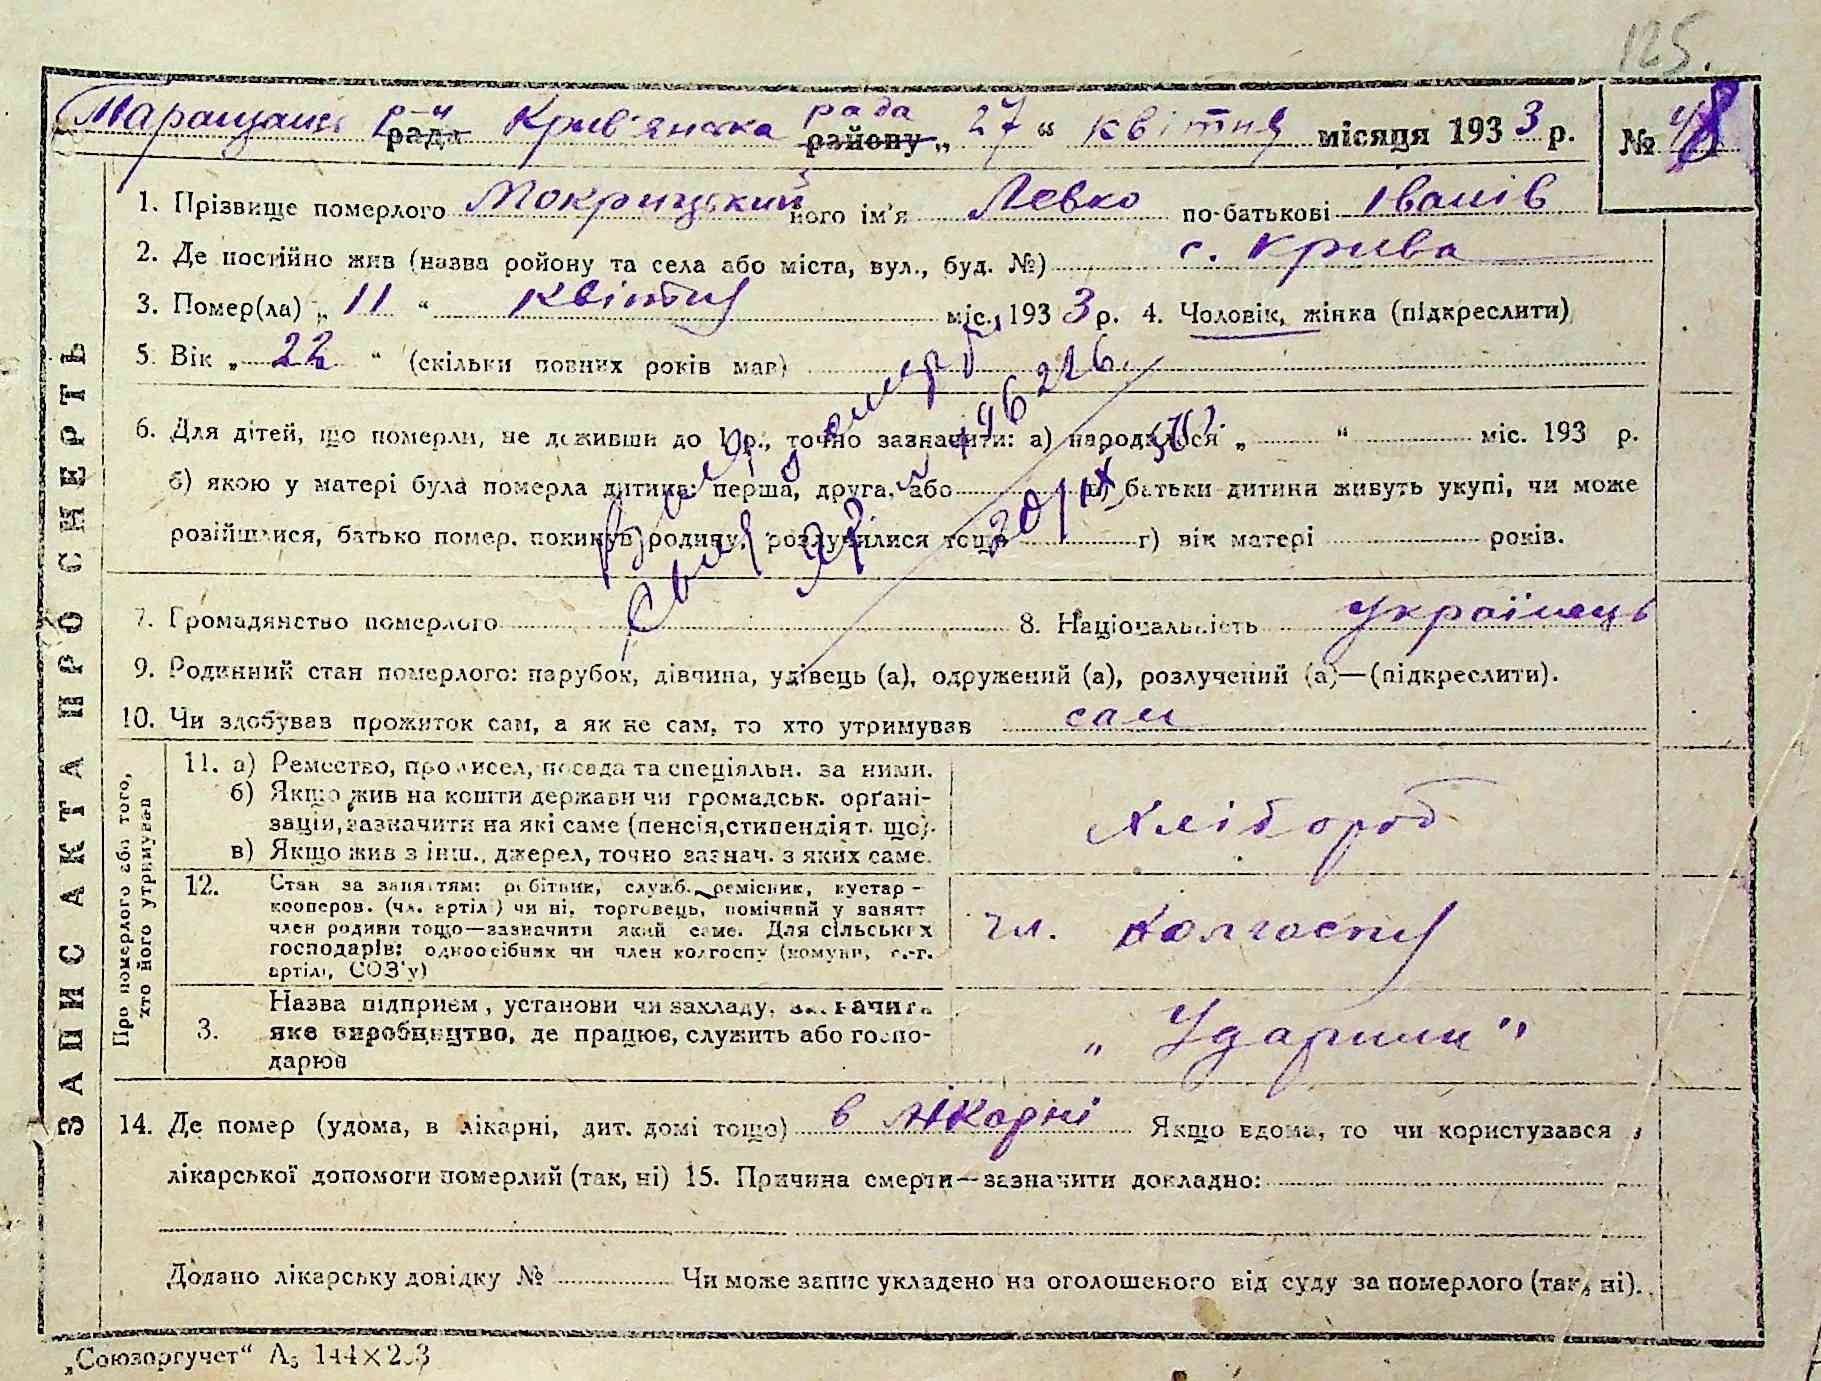 125.
Таращансь р-н рада Крив'янська рада району „ 27 “ квітня місяця 1933 р. № 48
ЗАПИС АКТА ПРО СМЕРТЬ
1. Прізвище померлого Мокрицький його ім'я Левко по-батькові Іванів
2. Де постійно жив (назва ройону та села або міста, вул., буд. №) с. Крива
3. Помер(ла) „ 11 “ квітня міс. 1933 р. 4. Чоловік, жінка (підкреслити)
5. Вік „ 22 “ (скільки повних років мав)
6. Для дітей, що померли, не доживши до 1 р., точно зазначити: а) народилося „ “ міс. 193 р.
б) якою у матері була померла дитина: перша, друга, або в) батьки дитини живуть укупі, чи може
розійшлися, батько помер. покинув родину, розлучилися тощо г) вік матері років.
7. Громадянство померлого 8. Національність Українець
9. Родинний стан померлого: парубок, дівчина, удівець (а), одружений (а), розлучений (а)—(підкреслити).
10. Чи здобував прожиток сам, а як не сам, то хто утримував сам
Про померлого або того, хто його утримував
11. а) Ремество, промисел, посада та спеціяльн. за ними.
б) Якщо жив на кошти держави чи громадськ. орґані-
зації, зазначити на які саме (пенсія, стипендія т. що).
в) Якщо жив з інш., джерел, точно зазнач. з яких саме.
Хлібороб
12. Стан за заняттям: робітник, служб. ремісник, кустар -
кооперов. (чл. артілі) чи ні, торговець, помічний у занятт
член родини тощо—зазначити який саме. Для сільських
господарів: одноосібник чи член колгоспу (комуни, с.-г.
артілі, СОЗ'у)
чл. колгоспу
3. Назва підприєм, установи чи закладу, зазначити
яке виробництво, де працює, служить або госпо-
дарює
„ Ударник "
14. Де помер (удома, в лікарні, дит. домі тощо) в лікарні Якщо вдома, то чи користувався
лікарської допомоги померлий (так, ні) 15. Причина смерти—зазначити докладно:
Додано лікарську довідку № Чи може запис укладено на оголошеного від суду за померлого (так, ні).
„Союзоргучет“ А5 144×203